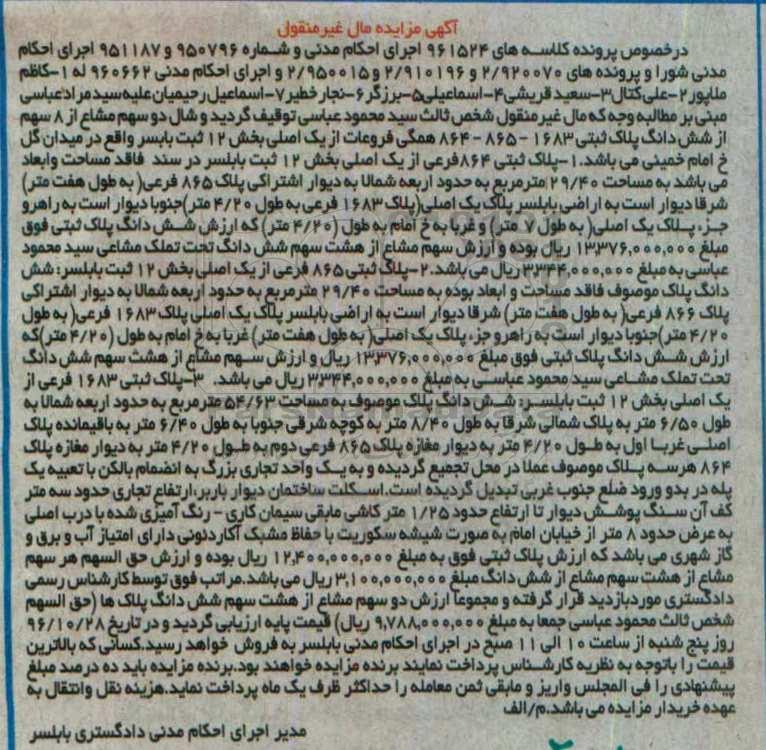 آگهی مزایده مال غیرمنقول
درخصوص پرونده کلاسه های ۹۶۱۵۲۴ اجرای احکام مدنی و شماره ۹۵۰۷۹۶ و ۹۵۱۱۸۷ اجرای احکام
مدنی شورا و پرونده های ۲/۹۲۰۰۷۰ و ۲/۹۱۰۱۹۶ و ۲/۹۵۰۰۱۵ و اجرای احکام مدنی ۹۶۰۶۶۲ له ۱-کاظم
ملاپور ۲-علی کتال ۳-سعید قریشی ۴-اسماعیلی ۵-برزگر ۶-نجار خطیر ۷-اسماعیل رحیمیان علیه سید مراد عباسی
مبنی بر مطالبه وجه که مال غیر منقول شخص ثالث سید محمود عباسی توقیف گردید و شال دو سهم مشاع از ۸ سهم
از شش دانگ پلاک ثبتی ۱۶۸۳ - ۸۶۵ - ۸۶۴ همگی فروعات از یک اصلی بخش ۱۲ ثبت بابسر واقع در میدان گل
خ امام خمینی می باشد. ۱-پلاک ثبتی ۸۶۴ فرعی از یک اصلی بخش ۱۲ ثبت بابلسر در سند فاقد مساحت وابعاد
می باشد به مساحت ۲۹/۴۰ مترمربع به حدود اربعه شمالا به دیوار اشتراکی پلاک ۸۶۵ فرعی( به طول هفت متر)
شرقا دیوار است به اراضی بابلسر پلاک یک اصلی(پلاک ۱۶۸۳ فرعی به طول ۴/۲۰ متر)جنوبا دیوار است به راهرو
جزء پلاک یک اصلی( به طول ۷ متر) و غربا به خ امام به طول (۴/۲۰ متر) که ارزش شش دانگ پلاک ثبتی فوق
مبلغ ۱۳,۳۷۶,۰۰۰,۰۰۰ ریال بوده و ارزش سهم مشاع از هشت سهم شش دانگ تحت تملک مشاعی سید محمود
عباسی به مبلغ ۳,۳۴۴,۰۰۰,۰۰۰ ریال می باشد. ۲-پلاگ ثبتی ۸۶۵ فرعی از یک اصلی بخش ۱۲ ثبت بابلسر: شش
دانگ پلاک موصوف فاقد مساحت و ابعاد بوده به مساحت ۲۹/۴۰ مترمربع به حدود اربعه شمالا به دیوار اشتراکی
پلاک ۸۶۶ فرعی( به طول هفت متر) شرقا دیوار است به اراضی بابلسر پلاک یک اصلی پلاک ۱۶۸۳ فرعی( به طول
۴/۲۰ متر)جنوبا دیوار است به راهرو جزء پلاک یک اصلی( به طول هفت متر) غربا به خ امام به طول (۴/۲۰ متر)که
ارزش شش دانگ پلاک ثبتی فوق مبلغ ۱۳,۳۷۶,۰۰۰,۰۰۰ ریال و ارزش سهم مشاع از هشت سهم شش دانگ
تحت تملک مشاعی سید محمود عباسی به مبلغ ۳,۳۴۴,۰۰۰,۰۰۰ ریال می باشد. ۳-پلاک ثبتی ۱۶۸۳ فرعی از
یک اصلی بخش ۱۲ ثبت بابلسر: شش دانگ پلاک موصوف به مساحت ۵۴/۶۳ مترمربع به حدود اربعه شمالا به
طول ۶/۵۰ متر به پلاک شمالی شرقا به طول ۸/۴۰ متر به کوچه شرقی جنوبا به طول ۶/۴۰ متر به باقیمانده پلاک
اصلی غربا اول به طول ۴/۲۰ متر به دیوار مغازه پلاک ۸۶۵ فرعی دوم به طول ۴/۲۰ متر به دیوار مغازه پلاک
۸۶۴ هرسه پلاک موصوف عملا در محل تجمیع گردیده و به یک واحد تجاری بزرگ به انضمام بالکن با تعبیه یک
پله در بدو ورود ضلع جنوب غربی تبدیل گردیده است.اسکلت ساختمان دیوار باربر،ارتفاع تجاری حدود سه متر
کف آن سنگ پوشش دیوار تا ارتفاع حدود ۱/۲۵ متر کاشی مابقی سیمان کاری - رنگ آمیزی شده با درب اصلی
به عرض حدود ۸ متر از خیابان امام به صورت شیشه سکوریت با حفاظ مشبک آکاردئونی دارای امتیاز آب و برق و
گاز شهری می باشد که ارزش پلاک ثبتی فوق به مبلغ ۱۲,۴۰۰,۰۰۰,۰۰۰ ریال بوده و ارزش حق السهم هر سهم
مشاع از هشت سهم مشاع از شش دانگ مبلغ ۳,۱۰۰,۰۰۰,۰۰۰ ریال می باشد.مراتب فوق توسط کارشناس رسمی
دادگستری موردبازدید قرار گرفته و مجموعا ارزش دو سهم مشاع از هشت سهم شش دانگ پلاک ها (حق السهم
شخص ثالث محمود عباسی جمعا به مبلغ ۹,۷۸۸,۰۰۰,۰۰۰ ریال) قیمت پایه ارزیابی گردید و در تاریخ ۹۶/۱۰/۲۸
روز پنج شنبه از ساعت ۱۰ الی ۱۱ صبح در اجرای احکام مدنی بابلسر به فروش خواهد رسید.کسانی که بالاترین
قیمت را باتوجه به نظریه کارشناس پرداخت نمایند برنده مزایده خواهند بود.برنده مزایده باید ده درصد مبلغ
پیشنهادی را فی المجلس واریز و مابقی ثمن معامله را حداکثر ظرف یک ماه پرداخت نماید.هزینه نقل وانتقال به
عهده خریدار مزایده می باشد.م/الف
مدیر اجرای احکام مدنی دادگستری بابلسر